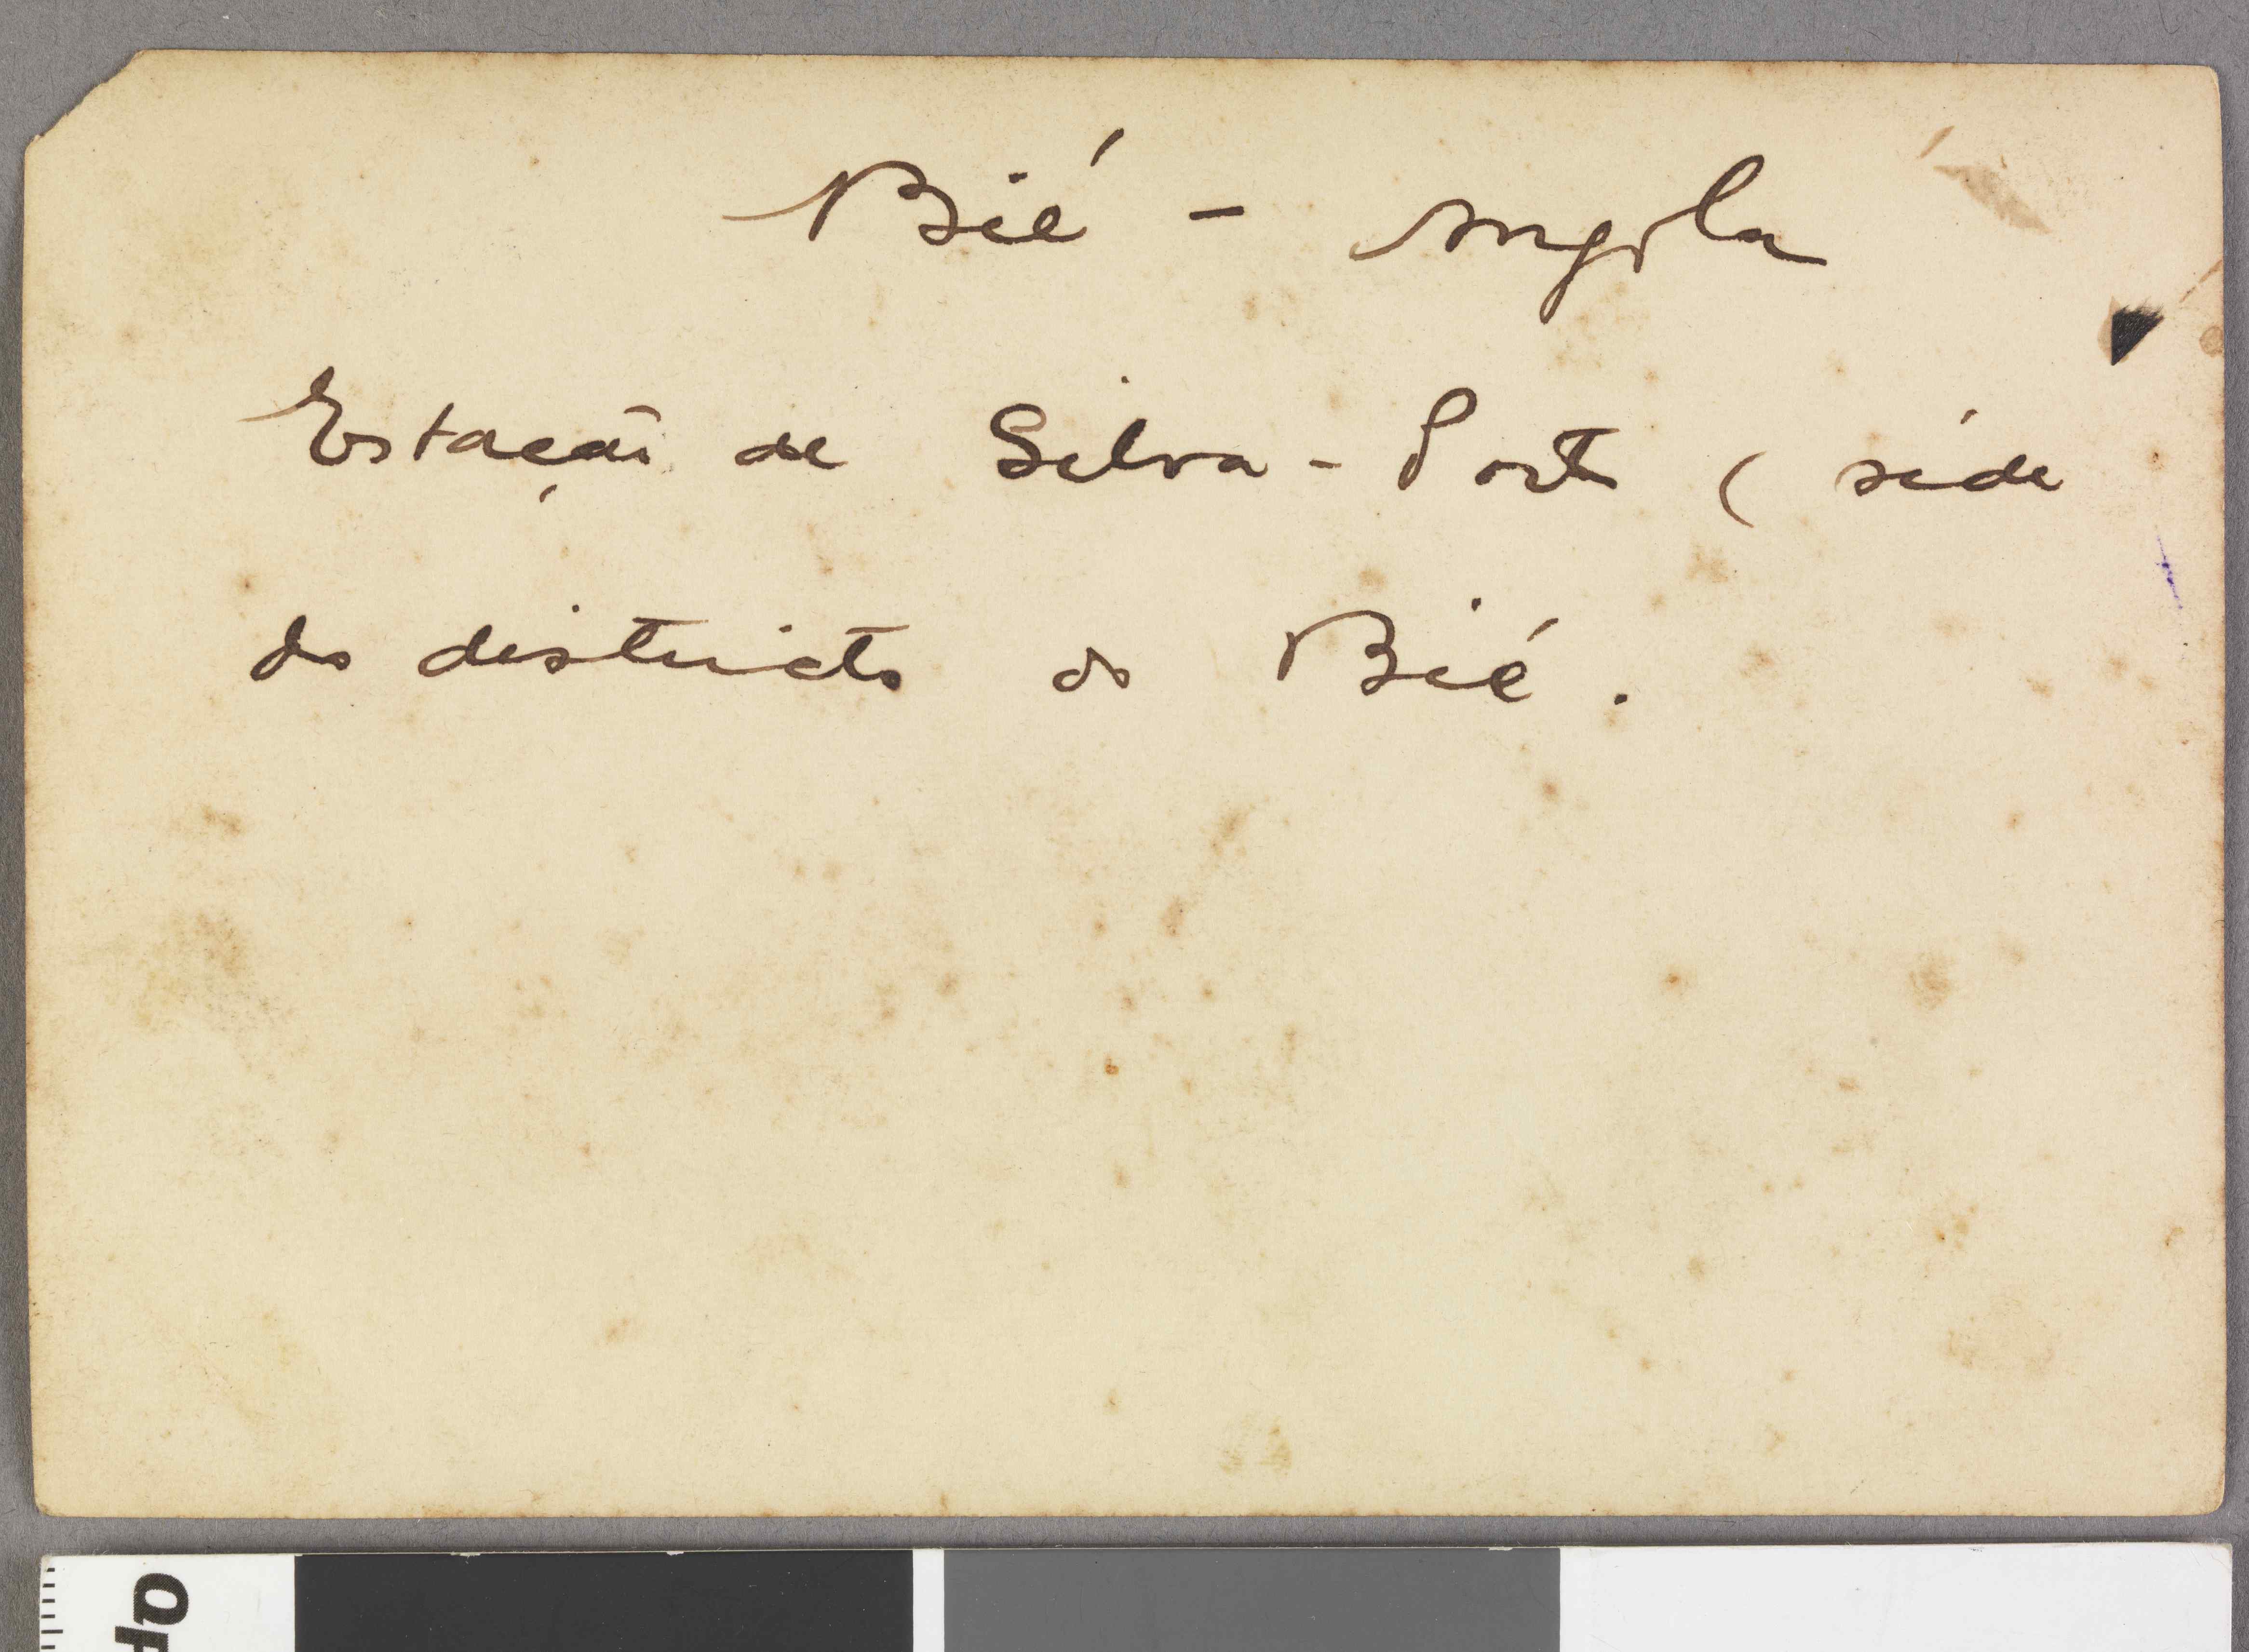 Bié - Angola
Estação de Silva-Porto (séde
do districto do Bié.